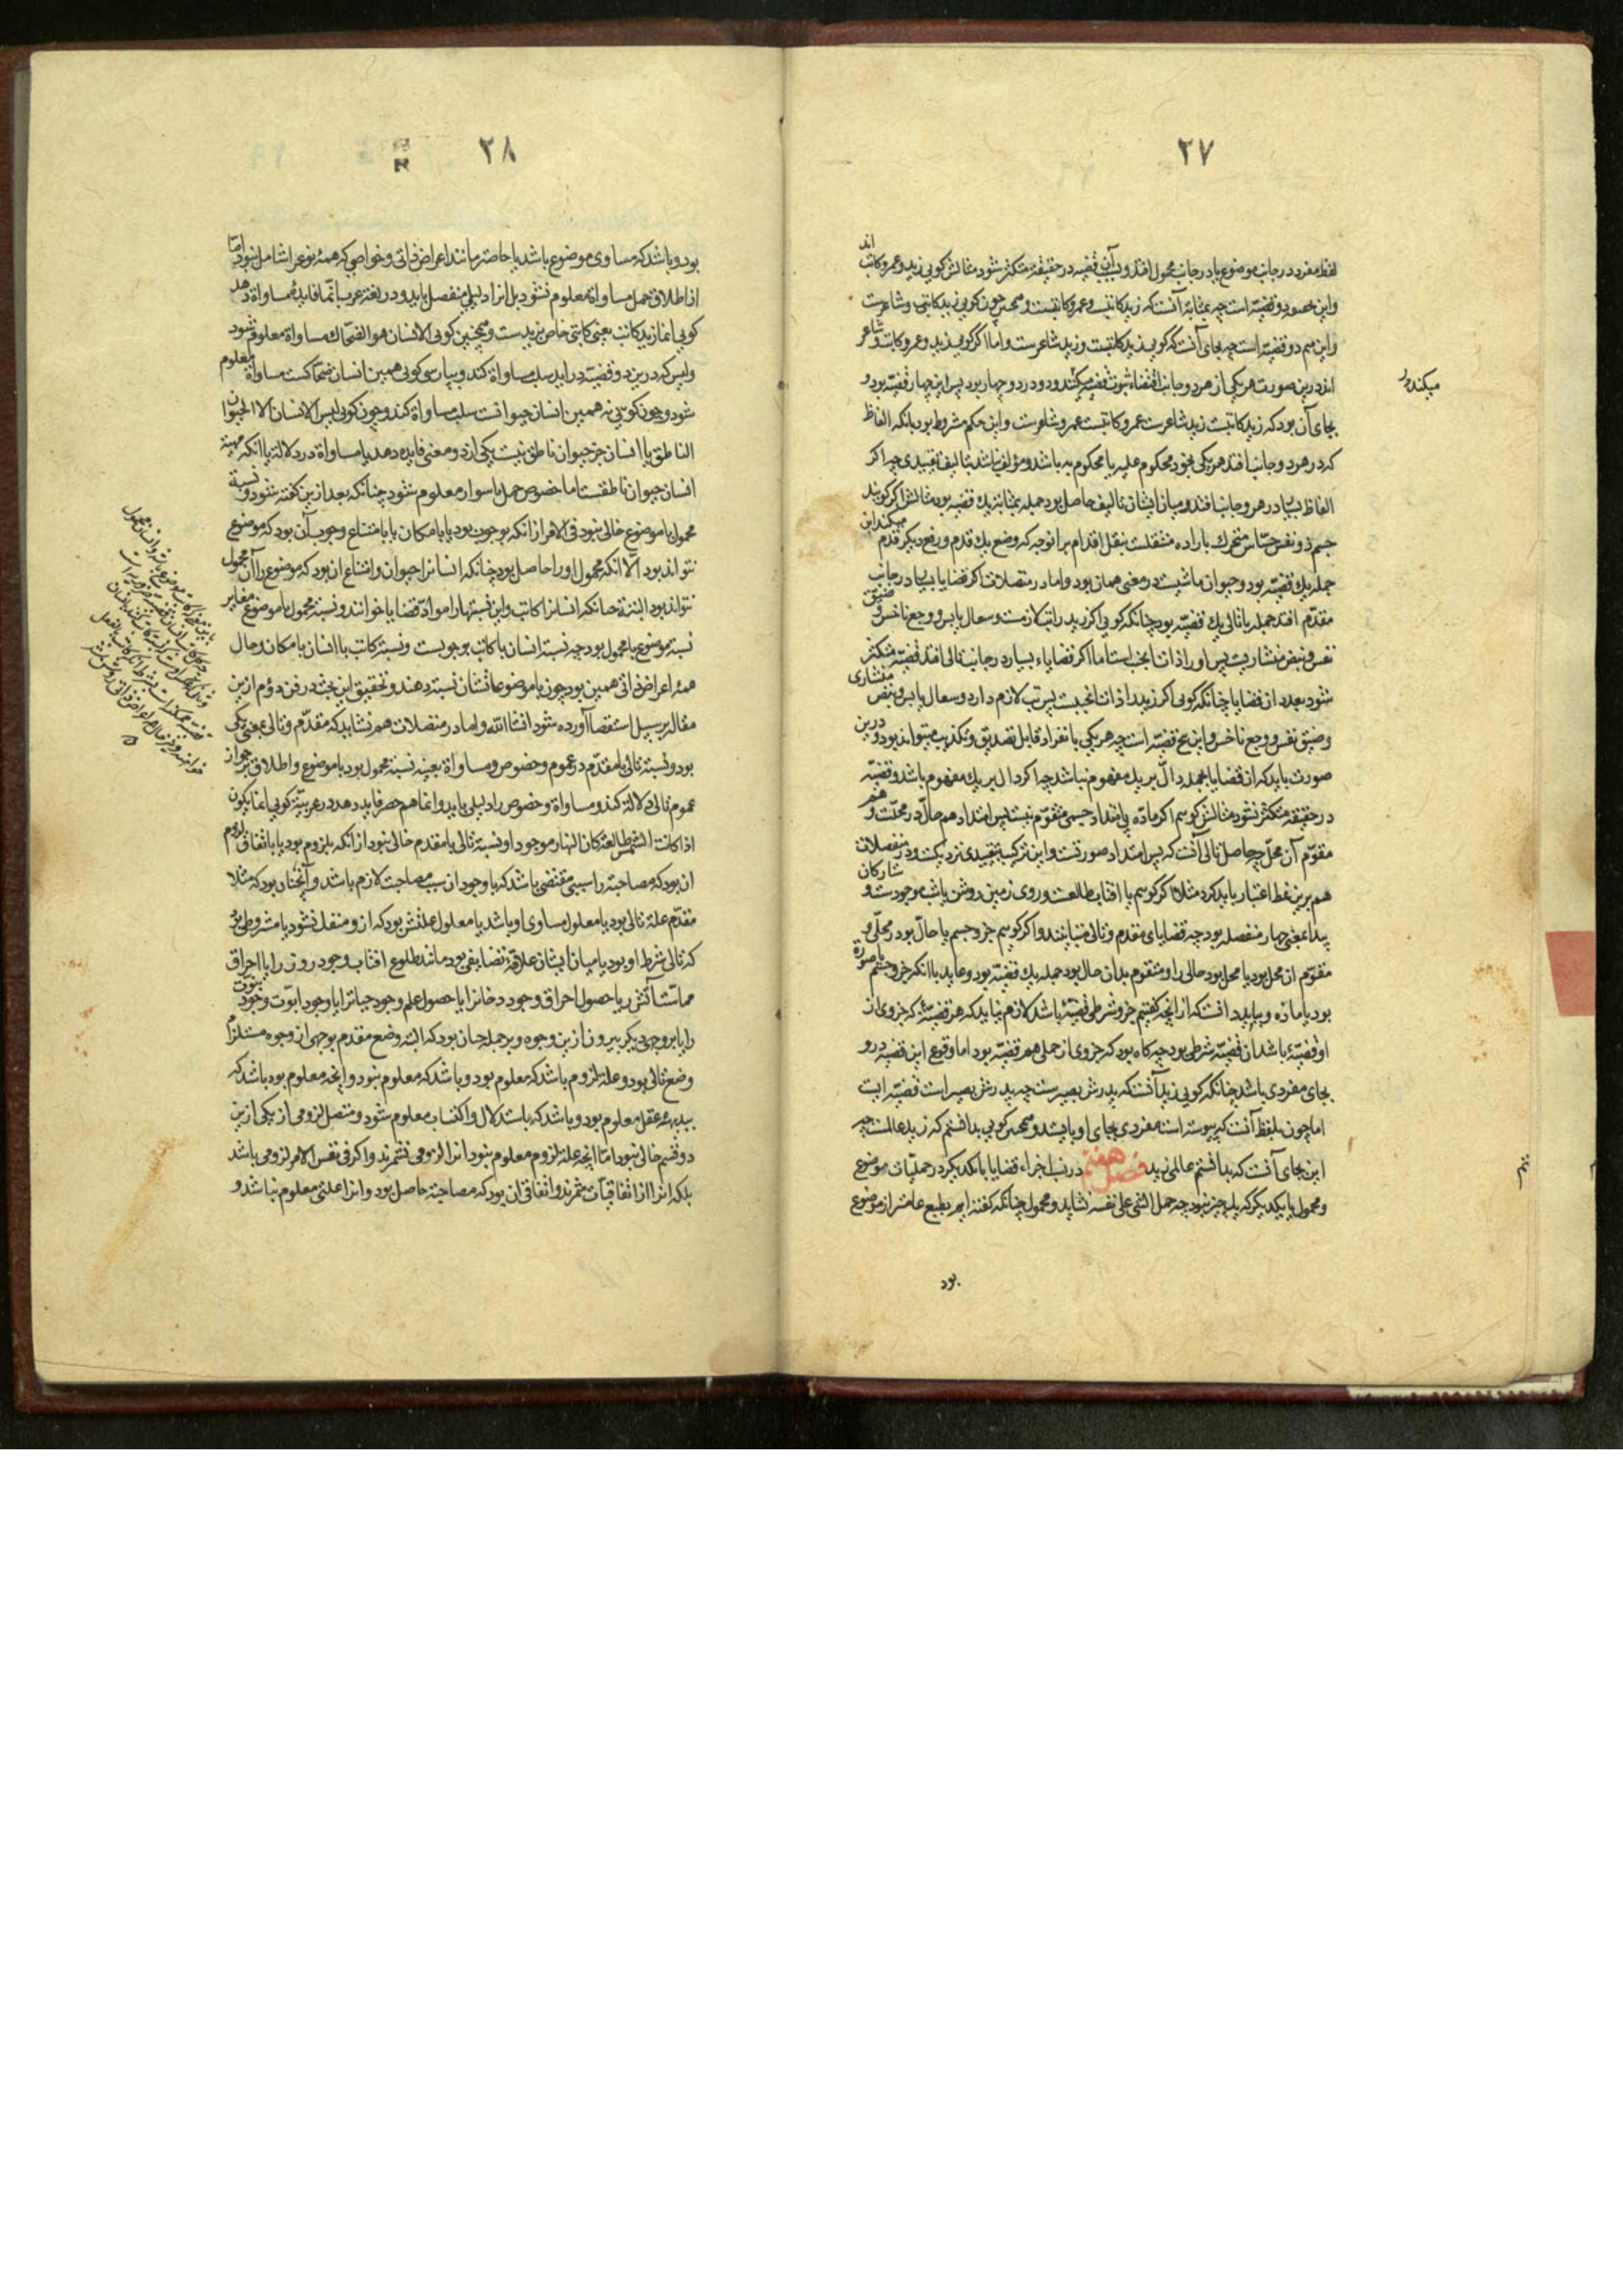 ۲۷
لفظ مفرد در جانب موضوع یا در جانب محمول افتد و بسبب آن قضیه در حقیقة متکثر شود مثالش کویی زید و عمرو کاتب اند
و این بحسب دو قضیه است چه بمثابهٔ آنست که زید کاتبست و عمرو کاتبست و همچنین چون کویی زید کاتب و شاعرست
و این هم دو قضیه است چه بجای آنست که کویی زید کاتبست و زید شاعرست و اما اکر کویی زید و عمرو کاتب و شاعر
اند درین صورت هر یکی از هر دو جانب اقتضاء ثبوت قضیه میکند و دو در دو چهار بود پس این چهار قضیه بود و
بجای آن بود که زید کاتبست زید شاعرست عمرو کاتبست عمرو شاعرست و این حکم مشروط بود بانکه الفاظ
که در هر دو جانب افتد هر یکی بخود محکوم علیه یا محکوم به باشد و مؤلف نباشد بتالیف تقییدی چه اکر
الفاظ بسیار در هر دو جانب افتد و میان ایشان تالیف حاصل بود جمله بمثابهٔ یک قضیه بود مثالش اکر کویند
جسم ذو نفس حساس متحرک باراده منتقلست بنقل اقدام برانوجه که وضع یک قدم و رفع دیکر قدم میکند این
جمله یک قضیه بود و حیوان ماشیست در معنی همان بود و اما در متصلات اکر قضایا بسیار در جانب
مقدم افتد جمله با تالی یک قضیه بود چنانکه کویی اکر زید را تب لازمست و سعال یابس و وجع ناخس و ضیق
نفس و نبض منشاری پس او را ذات الجنب است اما اکر قضایاء بسیار در جانب تالی افتد قضیه متکثر
شود بعدد ان قضایا چنانکه کویی اکر زید را ذات الجنبست پس تب لازم دارد و سعال یابس و نبض منشاری
و ضیق نفس و وجع ناخس و این پنج قضیه است چه هر یکی بانفراد قابل تصدیق و تکذیب میتواند بود و درین
صورت باید که ان قضایا بجمله دال بر یک مفهوم نباشد چه اکر دال بر یک مفهوم باشد قضیه
در حقیقة متکثر نشود مثالش کوییم اکر ماده بی امتداد جسمی متقوم نیست پس امتداد هم حال در محلست و هم
مقوم آن محل چه حاصل تالی آنست که پس امتداد صورتست و این ترکیب تقییدی نزدیکست و در منفصلات
هم برین نمط اعتبار باید کرد مثلا اکر کوییم یا افتاب طالعست و روی زمین روشن یا شب موجودست و ستارکان
پیدا بمعنی چهار منفصله بود چه قضایای مقدم و تالی متباینند و اکر کوییم جزو جسم یا حال بود در محلی و
مقوم ان محل بود یا محل بود حالی را و متقوم بدان حال بود جمله یک قضیه بود و عاید با انکه جزو جسم یا صورة
بود یا ماده و بباید دانست که از انچه کفتیم جزو شرطی قضیهٔ باشد لازم نیاید که هر قضیهٔ که جزوی از
او قضیهٔ باشد ان قضیه شرطی بود چه کاه بود که جزوی از حملی هم قضیه بود اما وقوع این قضیه درو
بجای مفردی باشد چنانکه کویی زید آنست که پدرش بصیرست چه پدرش بصیر است قضیه ایست
اما چون بلفظ آنست که پیوسته است مفردی بجای او بایستد و همچنین کویی بدانستم که زید عالمست چه
این بجای آنست که بدانستم عالمی زید فصل هفتم در نسب اجزاء قضایا با یکدیکر در حملیات موضوع
و محمول با یکدیکر که یک چیز نبود چه حمل الشی علی نفسه نشاید و محمول چنانکه کفته ایم بطبع عامتر از موضوع
بود
میکند و
۲۸
بود و باشد که مساوی موضوع باشد یا خاصتر مانند اعراض ذاتی و خواصی که همهٔ نوع را شامل نبود اما
از اطلاق حمل مساواة معلوم نشود بل انرا دلیلی منفصل باید و در لغة عرب انما فایدهٔ مساواة دهد
کویی انما زید کاتب یعنی کاتبی خاص بزیدست و همچنین کویی الانسان هو الضحاک مساواة معلوم شود
و لیس که درین دو قضیه دراید سلب مساواة کند و بپارسی کویی همین انسان ضحاکست مساواة معلوم
شود و چون کویی نه همین انسان حیوانست سلب مساواة کند و چون کویی لیس الانسان الا الحیوان
الناطق یا انسان جز حیوان ناطق نیست یکی از دو معنی فایده دهد یا مساواة در دلالة یا انکه مهیة
انسان حیوان ناطقست اما خصوص حمل باسوار معلوم شود چنانکه بعد ازین کفته شود و نسبة
محمول با موضوع خالی نبود فی الامر از انکه بوجوب بود یا بامکان یا بامتناع وجوب آن بود که موضوع
نتواند بود الا انکه محمول او را حاصل بود چنانکه انسانرا حیوان و امتناع ان بود که موضوع را آن محمول
نتواند بود البتة چنانکه انسانرا کاتب و این نسبتها را مواد قضایا خوانند و نسبة محمول با موضوع مغایر
نسبة موضوع با محمول بود چه نسبة انسان با کاتب بوجوبست و نسبة کاتب با انسان بامکان و حال
همهٔ اعراض ذاتی همین بود چون با موضوعاتشان نسبة دهند و تحقیق این بحث در فن دؤم ازین
مقاله بر سبیل استقصا آورده شود انشا الله و اما در متصلات هم نشاید که مقدم و تالی بمعنی یکی
بود و نسبة تالی با مقدم در عموم و خصوص و مساواة بعینه نسبة محمول بود با موضوع و اطلاق بر جواز
عموم تالی دلالة کند و مساواة و خصوص را دلیلی باید و انما هم حصر فایده دهد در عربیة کویی انما یکون
اذا کانت الشمس طالعة کان النهار موجودا و نسبة تالی با مقدم خالی نبود از انکه بلزوم بود یا باتفاق لزوم
ان بود که مصاحبة را سببی مقتضی باشد که با وجود ان سبب مصاحبت لازم باشد و آنچنان بود که مثلا
مقدم علة تالی بود یا معلول مساوی او باشد یا معلول علتش بود که ازو منفک نشود یا مشروطی بود
که تالی شرط او بود یا میان ایشان علاقهٔ تضایفی بود مانند طلوع افتاب وجود روز را یا احراق
مماست آتش را یا حصول احراق وجود دخانرا یا حصول علم وجود حیاترا یا وجود ابوت وجود بنوت
را یا بر وجهی دیکر بیرون ازین وجوه و بر جمله چنان بود که البته وضع مقدم بوجهی از وجوه مستلزم
وضع تالی بود و علة لزوم باشد که معلوم بود و باشد که معلوم نبود و انچه معلوم بود باشد که
ببدیههٔ عقل معلوم بود و باشد که باستدلال و اکتساب معلوم شود و متصل لزومی از یکی ازین
دو قسم خالی نبود اما انچه علة لزوم معلوم نبود انرا لزومی نشمرند و اکر فی نفس الامر لزومی باشد
بلکه انرا از اتفاقیات شمرند و اتفاقی ان بود که مصاحبة حاصل بود و انرا علتی معلوم نباشد و